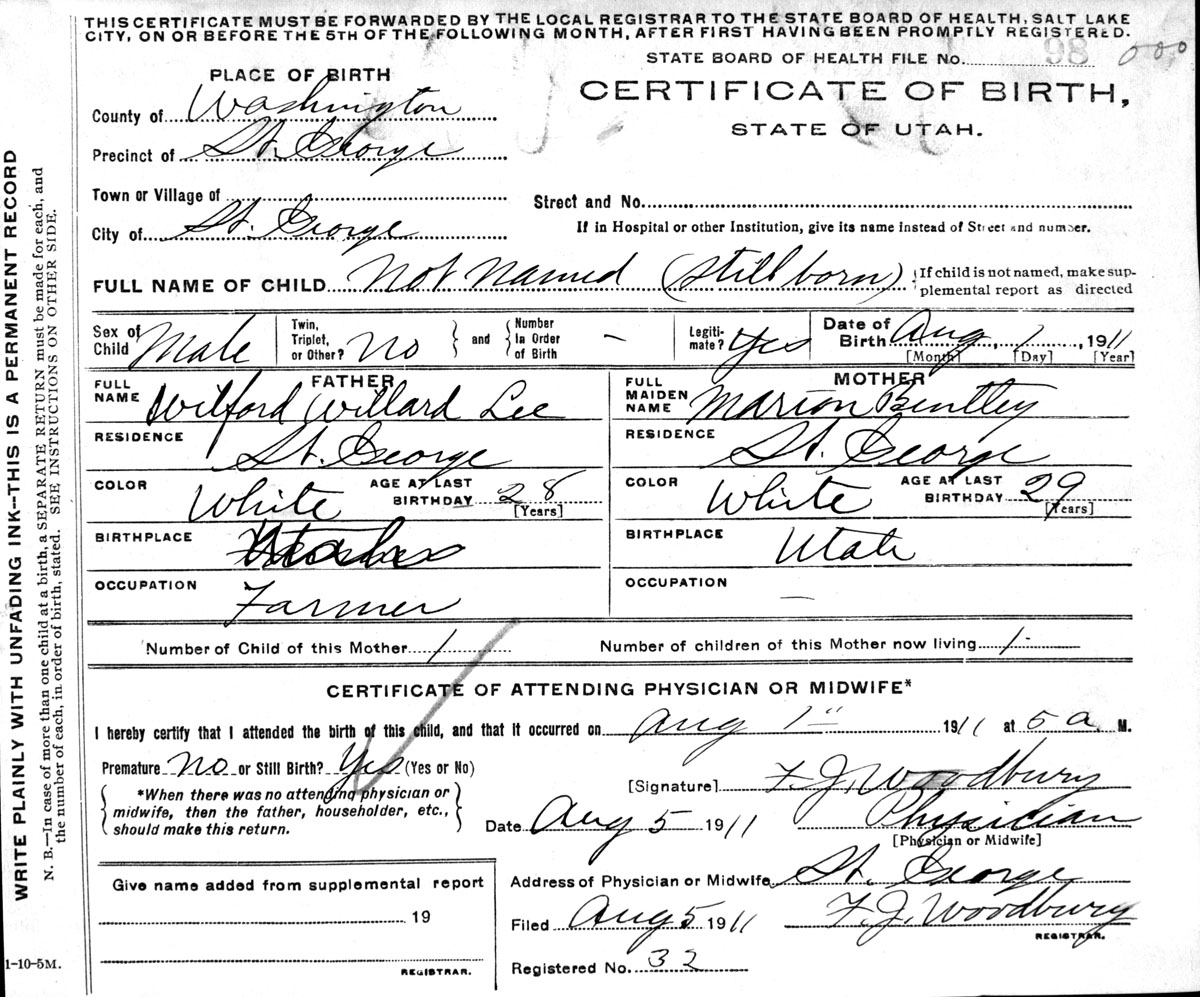 THIS CERTIFICATE MUST BE FORWARDED BY THE LOCAL REGISTRAR TO THE STATE BOARD OF HEALTH, SALT LAKE
CITY, ON OR BEFORE THE 5TH OF THE FOLLOWING MONTH, AFTER FIRST HAVING BEEN PROMPTLY REGISTERED.
STATE BOARD OF HEALTH FILE No. 98 000
PLACE OF BIRTH
CERTIFICATE OF BIRTH,
STATE OF UTAH.
County of Washington
Precinct of St. George
Town or Village of
Street and No.
City of St. George
If in Hospital or other Institution, give its name instead of Street and number.
FULL NAME OF CHILD Not Named (Still born) { If child is not named, make sup-
plemental report as directed
Sex of Child Male Twin, Triplet, or Other? No } and { Number In Order of Birth – Legiti-mate? Yes Date of Birth Aug, 1, 1911
[Month] [Day] [Year]
FATHER
FULL NAME Wilford Willard Lee
RESIDENCE St. George
COLOR White AGE AT LAST BIRTHDAY 28 [Years]
BIRTHPLACE
OCCUPATION Farmer
MOTHER
FULL MAIDEN NAME Marion Bentley
RESIDENCE St. George
COLOR White AGE AT LAST BIRTHDAY 29 [Years]
BIRTHPLACE Utah
OCCUPATION —
Number of Child of this Mother 1 Number of children of this Mother now living 1-
CERTIFICATE OF ATTENDING PHYSICIAN OR MIDWIFE*
I hereby certify that I attended the birth of this child, and that it occurred on Aug 1" 1911 at 5 a. M.
Premature No or Still Birth? Yes (Yes or No)
[Signature] F. J. Woodbury
*When there was no attending physician or
midwife, then the father, householder, etc.,
should make this return.
Date Aug 5 1911 Physician
[Physician or Midwife]
Give name added from supplemental report
19
REGISTRAR.
Address of Physician or Midwife St. George
Filed Aug 5 1911 F. J. Woodbury
REGISTRAR.
Registered No. 32
WRITE PLAINLY WITH UNFADING INK--THIS IS A PERMANENT RECORD
N. B.—In case of more than one child at a birth, a SEPARATE RETURN must be made for each, and
the number of each, in order of birth, stated. SEE INSTRUCTIONS ON OTHER SIDE.
1-10-5M.